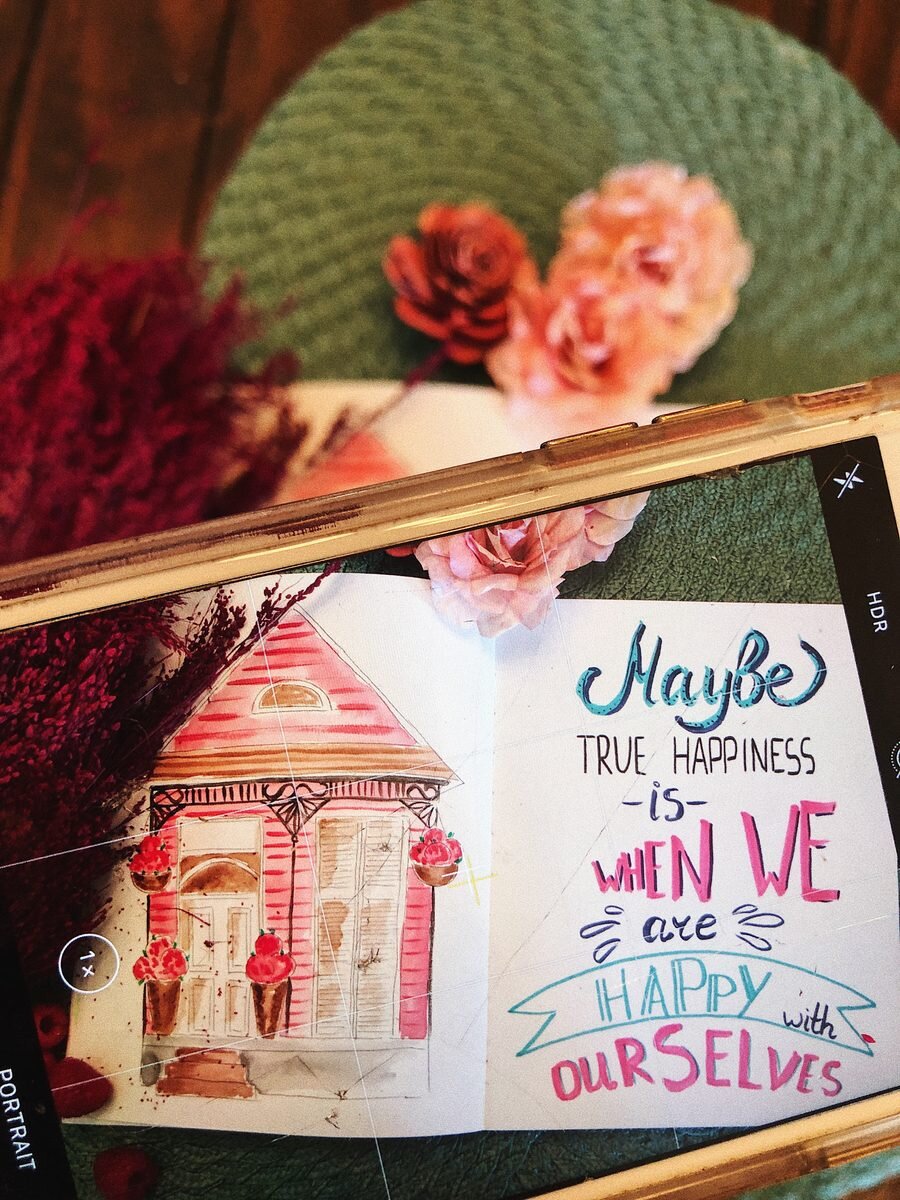 Maybe
TRUE HAPPINESS
-is-
WHEN WE
are
HAPPY with
OURSELVES
HDR
1×
PORTRAIT